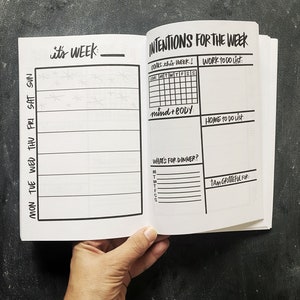 it's WEEK:
SUN
SAT
FRI
THU
WED
TUE
MON
INTENTIONS FOR THE WEEK
this week!
WORK TO DO LIST
mind + BODY
HOME TO DO LIST
WHAT'S FOR DINNER?
M
T
W
T
F
I AM GRATEFUL FOR